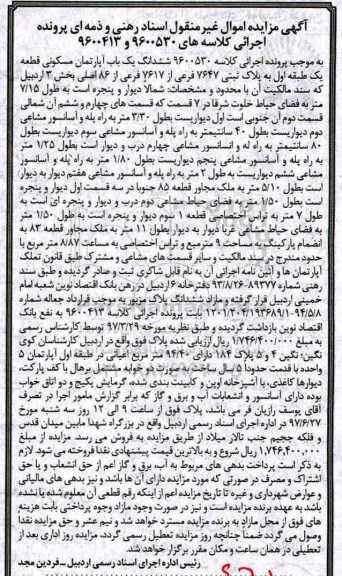 آگهی مزایده اموال غیرمنقول اسناد رهنی و ذمه ای پرونده
اجرائی کلاسه های ۹۶۰۰۵۳۰ و ۹۶۰۰۴۱۳
به موجب پرونده اجرائی کلاسه ۹۶۰۰۵۳۰ ششدانگ یک باب آپارتمان مسکونی قطعه
یک طبقه اول به پلاک ثبتی ۷۶۴۷ فرعی از ۷۶۱۷ فرعی از ۸۶ اصلی بخش ۳ اردبیل
که سند مالکیت آن با محدود و مشخصات: شمالا دیوار و پنجره است به طول ۷/۱۵
متر به فضای حیاط خلوت شرقا در ۷ قسمت که قسمت های چهارم و ششم آن شمالی
قسمت دوم آن جنوبی است اول دیواریست بطول ۳/۳۰ متر به راه پله و آسانسور مشاعی
دوم دیواریست بطول ۴۰ سانتیمتر به راه پله و آسانسور مشاعی سوم دیواریست بطول
۸۰ سانتیمتر به راه پله و آسانسور مشاعی چهارم درب و دیوار است بطول ۱/۲۵ متر
به راه پله و آسانسور مشاعی پنجم دیواریست بطول ۱/۸۰ متر به راه پله و آسانسور
مشاعی ششم دیواریست به طول ۲ متر به راه پله و آسانسور مشاعی هفتم دیوار به دیوار
است بطول ۵/۱۰ متر به ملک مجاور قطعه ۸۵ جنوبا در سه قسمت اول دیوار و پنجره
است بطول ۱/۵۰ متر به فضای حیاط مشاعی دوم درب و دیوار و پنجره ای است به
طول ۷ متر به تراس اختصاصی قطعه ۱ سوم دیوار و پنجره است به طول ۱/۵۰ متر
به فضای حیاط مشاعی غربا دیوار به دیوار بطول ۱۱ متر به ملک مجاور قطعه ۸۳ به
انضمام پارکینگ به مساحت ۹ مترمربع و تراس اختصاصی به مساحت ۸/۸۷ متر مربع با
حدود مندرج در سند مالکیت و سایر قسمت های مشاعی و مشترک طبق قانون تملک
آپارتمان ها و آئین نامه اجرائی آن به نام قابل شاکری ثبت و صادر گردیده و طبق سند
رهنی شماره ۸۹۳۷۷-۹۳/۸/۲۶ دفترخانه ۶ اردبیل در رهن بانک اقتصاد نوین شعبه امام
خمینی اردبیل قرار گرفته و مازاد ششدانگ پلاک مزبور به موجب قرارداد جعاله شماره
۱۲۰۱/۲۰۴/۱۹۳۶۸۹/۱-۹۴/۵/۸ بابت پرونده اجرائی کلاسه ۹۶۰۰۴۱۳ به نفع بانک
اقتصاد نوین بازداشت گردیده و طبق نظریه مورخه ۹۷/۳/۲۹ توسط کارشناس رسمی
به مبلغ ۱/۷۴۶/۴۰۰/۰۰۰ ریال ارزیابی شده پلاک فوق واقع در اردبیل کارشناسان کوی
نگین؛ نگین ۴ و ۵ پلاک ۱۸۴ دارای ۹۴/۴۰ متر مربع اعیانی در طبقه اول آپارتمان ۵
واحده با قدمت حدودا ۵ سال ساخت به صورت دو خوابه مشتمل برهال با کف پارکت،
دیوارها کاغذی، با آشپزخانه اوپن و کابینت بندی شده، گرمایش پکیج و دو اتاق خواب
بوده دارای آسانسور و انشعابات آب و برق و گاز که برابر گزارش مامور اجرا در تصرف
آقای یوسف رازیان فر می باشد، پلاک فوق از ساعت ۹ الی ۱۲ روز سه شنبه مورخ
۹۷/۶/۲۷ در اداره اجرای اسناد رسمی اردبیل واقع در بزرگراه شهدا مابین میدان قدس
و فلکه ججین جنب تالار میلاد از طریق مزایده به فروش می رسد. مزایده از مبلغ
۱,۷۴۶,۴۰۰,۰۰۰ ریال شروع و به بالاترین قیمت پیشنهادی نقدا فروخته می شود. لازم
به ذکر است پرداخت بدهی های مربوط به آب، برق و گاز اعم از حق انشعاب و یا حق
اشتراک و مصرف در صورتی که مورد مزایده دارای آن ها باشد و نیز بدهی های مالیاتی
و عوارض شهرداری و غیره تا تاریخ مزایده اعم از اینکه رقم قطعی آن معلوم شده یا نشده
باشد به عهده برنده مزایده است و نیز در صورت وجود مازاد وجوه پرداختی بابت هزینه
های فوق از محل مازاد به برنده مزایده مسترد خواهد شد و نیم عشر و حق مزایده نقدا
وصول می گردد ضمنا چنانچه روز مزایده تعطیل رسمی گردد، مزایده روز اداری بعد از
تعطیلی در همان ساعت و مکان مقرر برگزار خواهد شد.
رئیس اداره اجرای اسناد رسمی اردبیل ـ فردین مجد